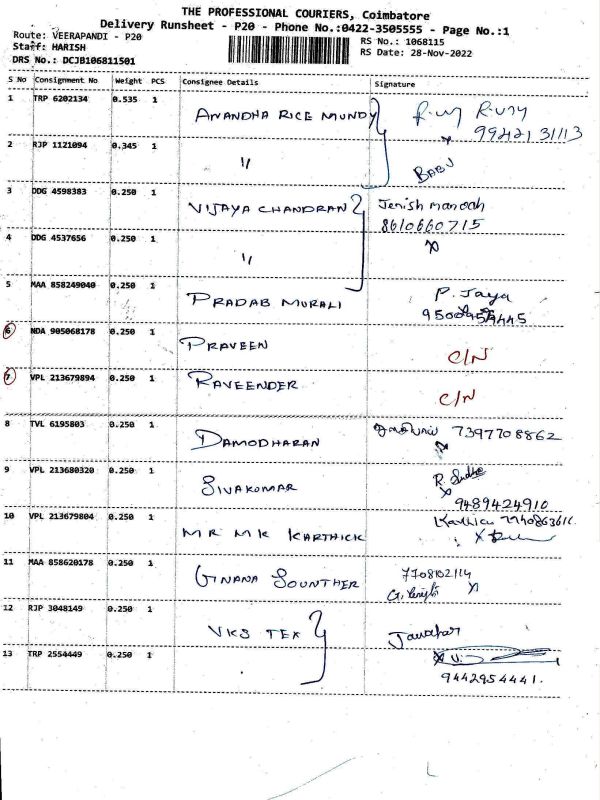 THE PROFESSIONAL COURIERS, Coimbatore
Delivery Runsheet - P20 - Phone No.:0422-3505555 - Page No.:1
Route: VEERAPANDI - P20
RS No.: 1068115
Staff: HARISH
RS Date: 28-Nov-2022
DRS No.: DCJB106811501
S No Consignment No. Weight PCS Consignee Details Signature
1 TRP 6202134 0.535 1 ANANDHA RICE MUNDY
99421 31113
2 RJP 1121094 0.345 1 〃 BABU
3 DDG 4598383 0.250 1 VIJAYA CHANDRAN Jenish manoah
8610660715
4 DDG 4537656 0.250 1 〃
5 MAA 858249040 0.250 1 PRADAB MURALI P. Jaya
6 NDA 905068178 0.250 1 PRAVEEN C/N
7 VPL 213679894 0.250 1 RAVEENDER C/N
8 TVL 6195803 0.250 1 DAMODHARAN 7397708862
9 VPL 213680320 0.250 1 SIVAKUMAR R. Sudha
9489424910
10 VPL 213679804 0.250 1 MR MK KARTHICK
11 MAA 858620178 0.250 1 GNANA SOUNTHER 7708102114
12 RJP 3048149 0.250 1 VKS TEX Jawahar
13 TRP 2554449 0.250 1
9442954441.